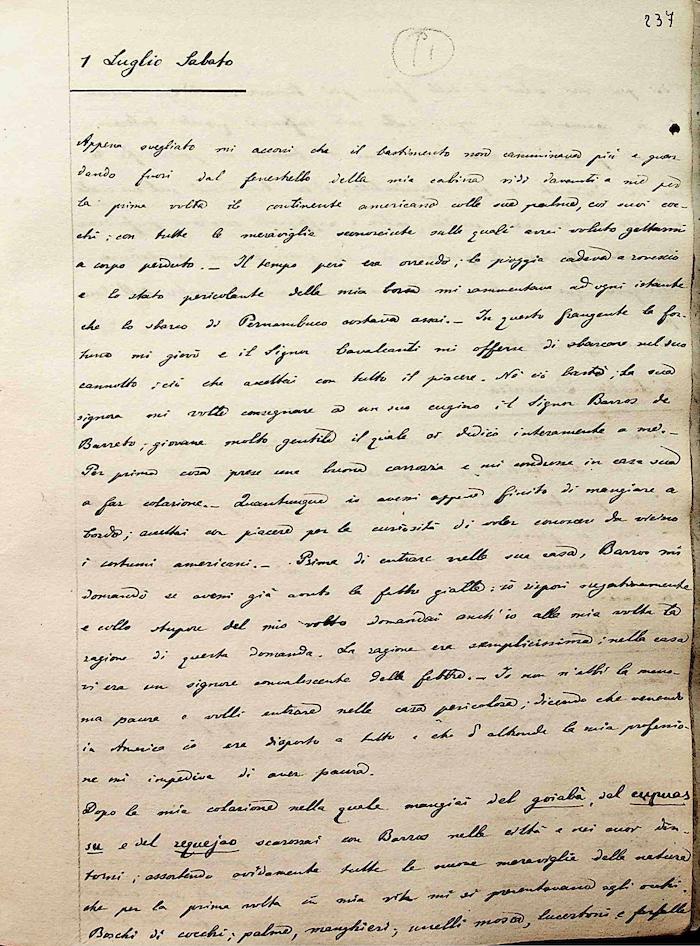 237
1 Luglio Sabato
Appena svegliato mi accorsi che il bastimento non camminava più e guar-
dando fuori dal fenestrello della mia cabina vidi davanti a me per
la prima volta il continente americano colle sue palme, coi suoi coc-
chi; con tutte le meraviglie sconosciute sulle quali avrei voluto gettarmi
a corpo perduto. — Il tempo però era orrendo; la pioggia cadeva a rovescio
e lo stato pericolante della mia borsa mi rammentava ad ogni istante
che lo sbarco di Pernambuco costava assai. — In questo frangente la for-
tuna mi giovò e il Signor Cavalcanti mi offerse di sbarcare nel suo
cannotto; ciò che accettai con tutto il piacere. Nè ciò bastò; la sua
signora mi volle consegnare a un suo cugino il Signor Barros de
Barreto; giovane molto gentile il quale si dedicò interamente a me. —
Per prima cosa prese una buona carrozza e mi condusse in casa sua
a far colazione. — Quantunque io avessi appena finito di mangiare a
bordo; accettai con piacere per la curiosità di voler conoscere da vicino
i costumi americani. — Prima di entrare nella sua casa, Barros mi
domandò se avessi già avuto la febbre gialla; io risposi negativamente
e collo stupore del mio volto domandai anch'io alla mia volta la
ragione di questa domanda. La ragione era semplicissima; nella casa
vi era un signore convalescente della febbre. — Io non n'ebbi la meno-
ma paura e volli entrare nella casa pericolosa; dicendo che venendo
in America io era disposto a tutto e che d'altronde la mia professio-
ne mi impediva di aver paura.
Dopo la mia colazione nella quale mangiai del goiaba, del cupuas
su e del requejao scarozzai con Barros nella città e nei suoi din-
torni; assorbendo avidamente tutte le nuove meraviglie della natura
che per la prima volta in mia vita mi si presentavano agli occhi.
Boschi di cocchi; palme, manghieri; uccelli mosca, lucertoni e farfalle